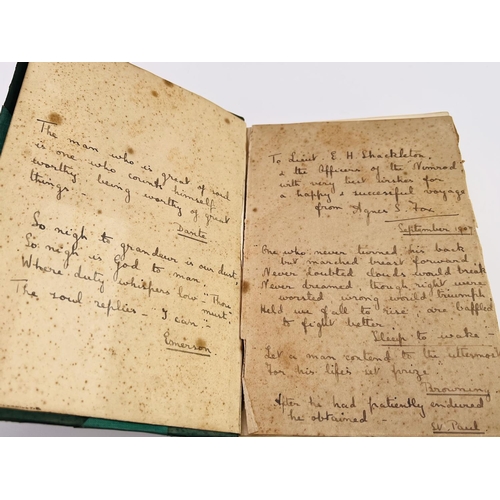 The man who is great of soul
is one who counts himself
worthy, being worthy of great
things.
Dante
So nigh to grandeur is our dust,
So nigh is God to man,
Where duty whispers low "Thou must"
The soul replies - "I can"
Emerson
To Lieut. E. H. Shackleton,
& the Officers of the Nimrod
with very best wishes for
a happy & successful voyage
from Agnes S. Fox
September 1907
"One who never turned his back
but marched breast forward,
Never doubted clouds would break
Never dreamed, though right were
worsted wrong would triumph
Held we fall to rise, are baffled
to fight better.
Sleep to wake
Let a man contend to the uttermost
For his life's set prize"
Browning
After he had patiently endured
he obtained -
St. Paul